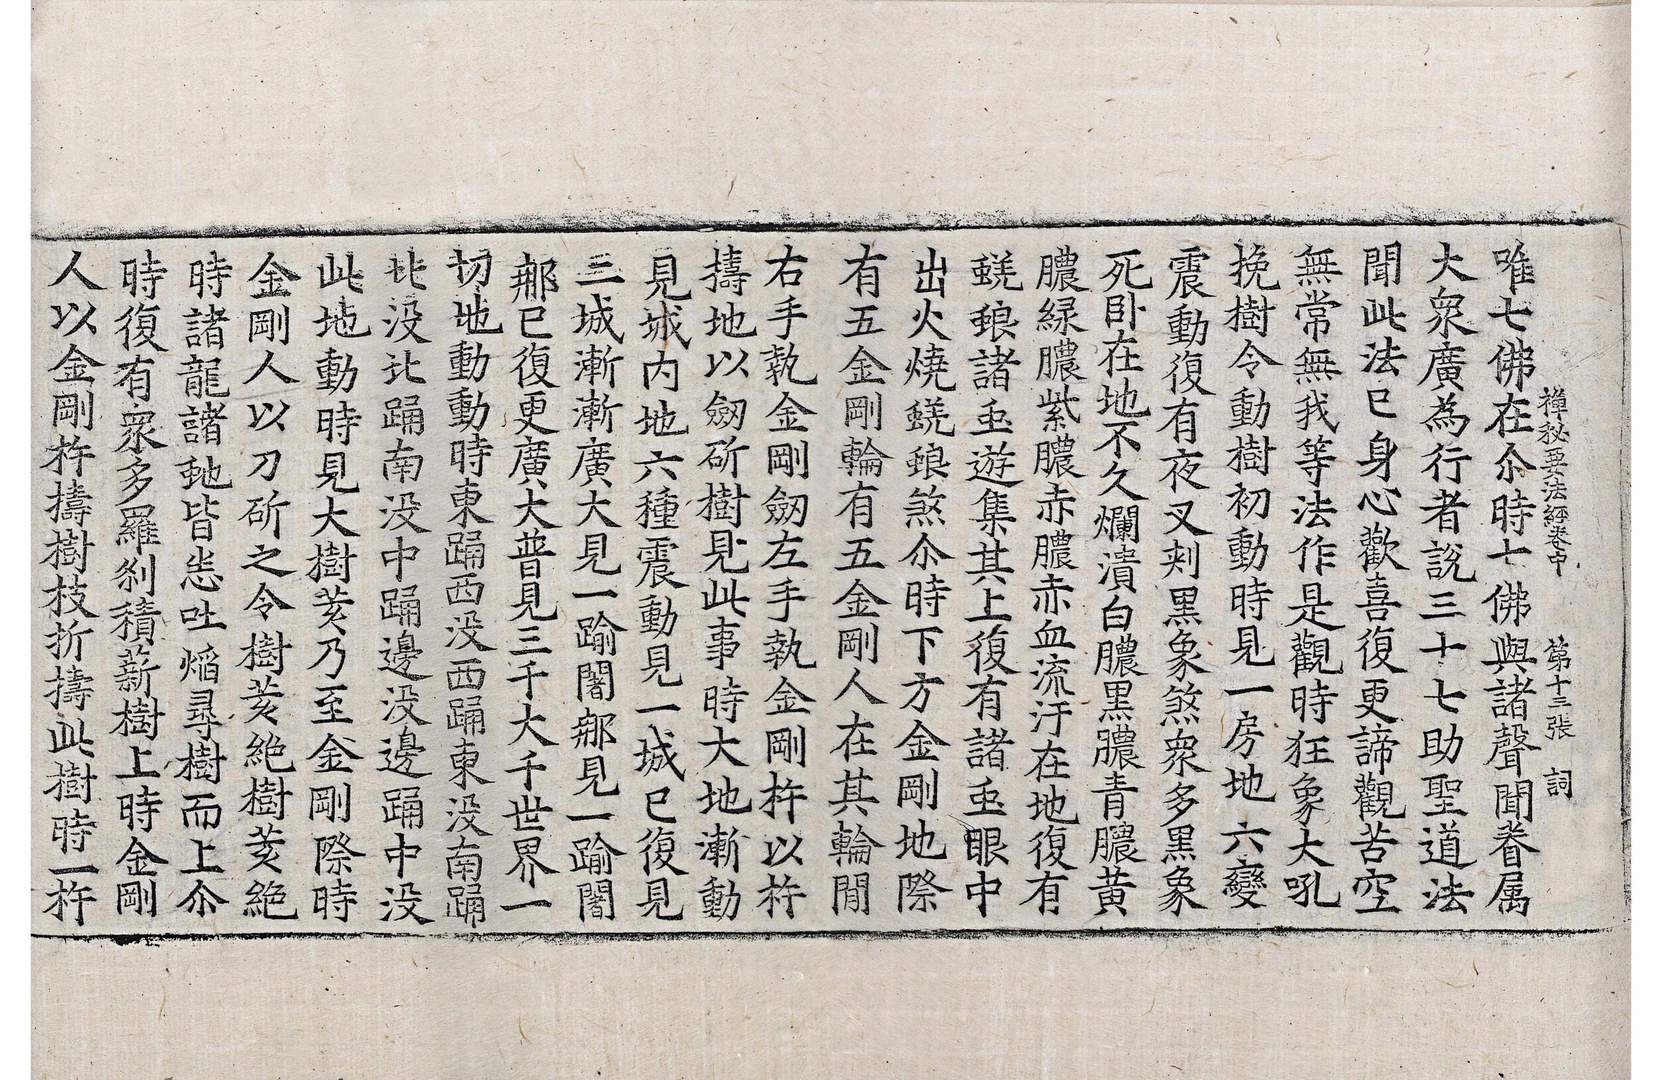 禪秘要法經卷中　第十三張　詞
唯七佛在尒時七佛與諸聲聞眷属
大衆廣為行者說三十七助聖道法
聞此法已身心歡喜復更諦觀苦空
無常無我等法作是觀時狂象大吼
挽樹令動樹初動時見一房地六變
震動復有夜叉刾黑象煞衆多黑象
死卧在地不久爛潰白膿黑膿青膿黄
膿緑膿紫膿赤膿赤血流汙在地復有
蜣蜋諸䖝遊集其上復有諸䖝眼中
出火燒蜣蜋煞尒時下方金剛地際
有五金剛輪有五金剛人在其輪間
右手執金剛劒左手執金剛杵以杵
擣地以劒斫樹見此事時大地漸動
見城内地六種震動見一城已復見
三城漸漸廣大見一踰闍那見一踰闍
那已復更廣大普見三千大千世界一
切地動動時東踊西没西踊東没南踊
北没北踊南没中踊邊没邊踊中没
此地動時見大樹荄乃至金剛際時
金剛人以刀斫之令樹荄絶樹荄絶
時諸龍諸虵皆悉吐焰尋樹而上尒
時復有衆多羅刹積薪樹上時金剛
人以金剛杵擣樹枝折擣此樹時一杵